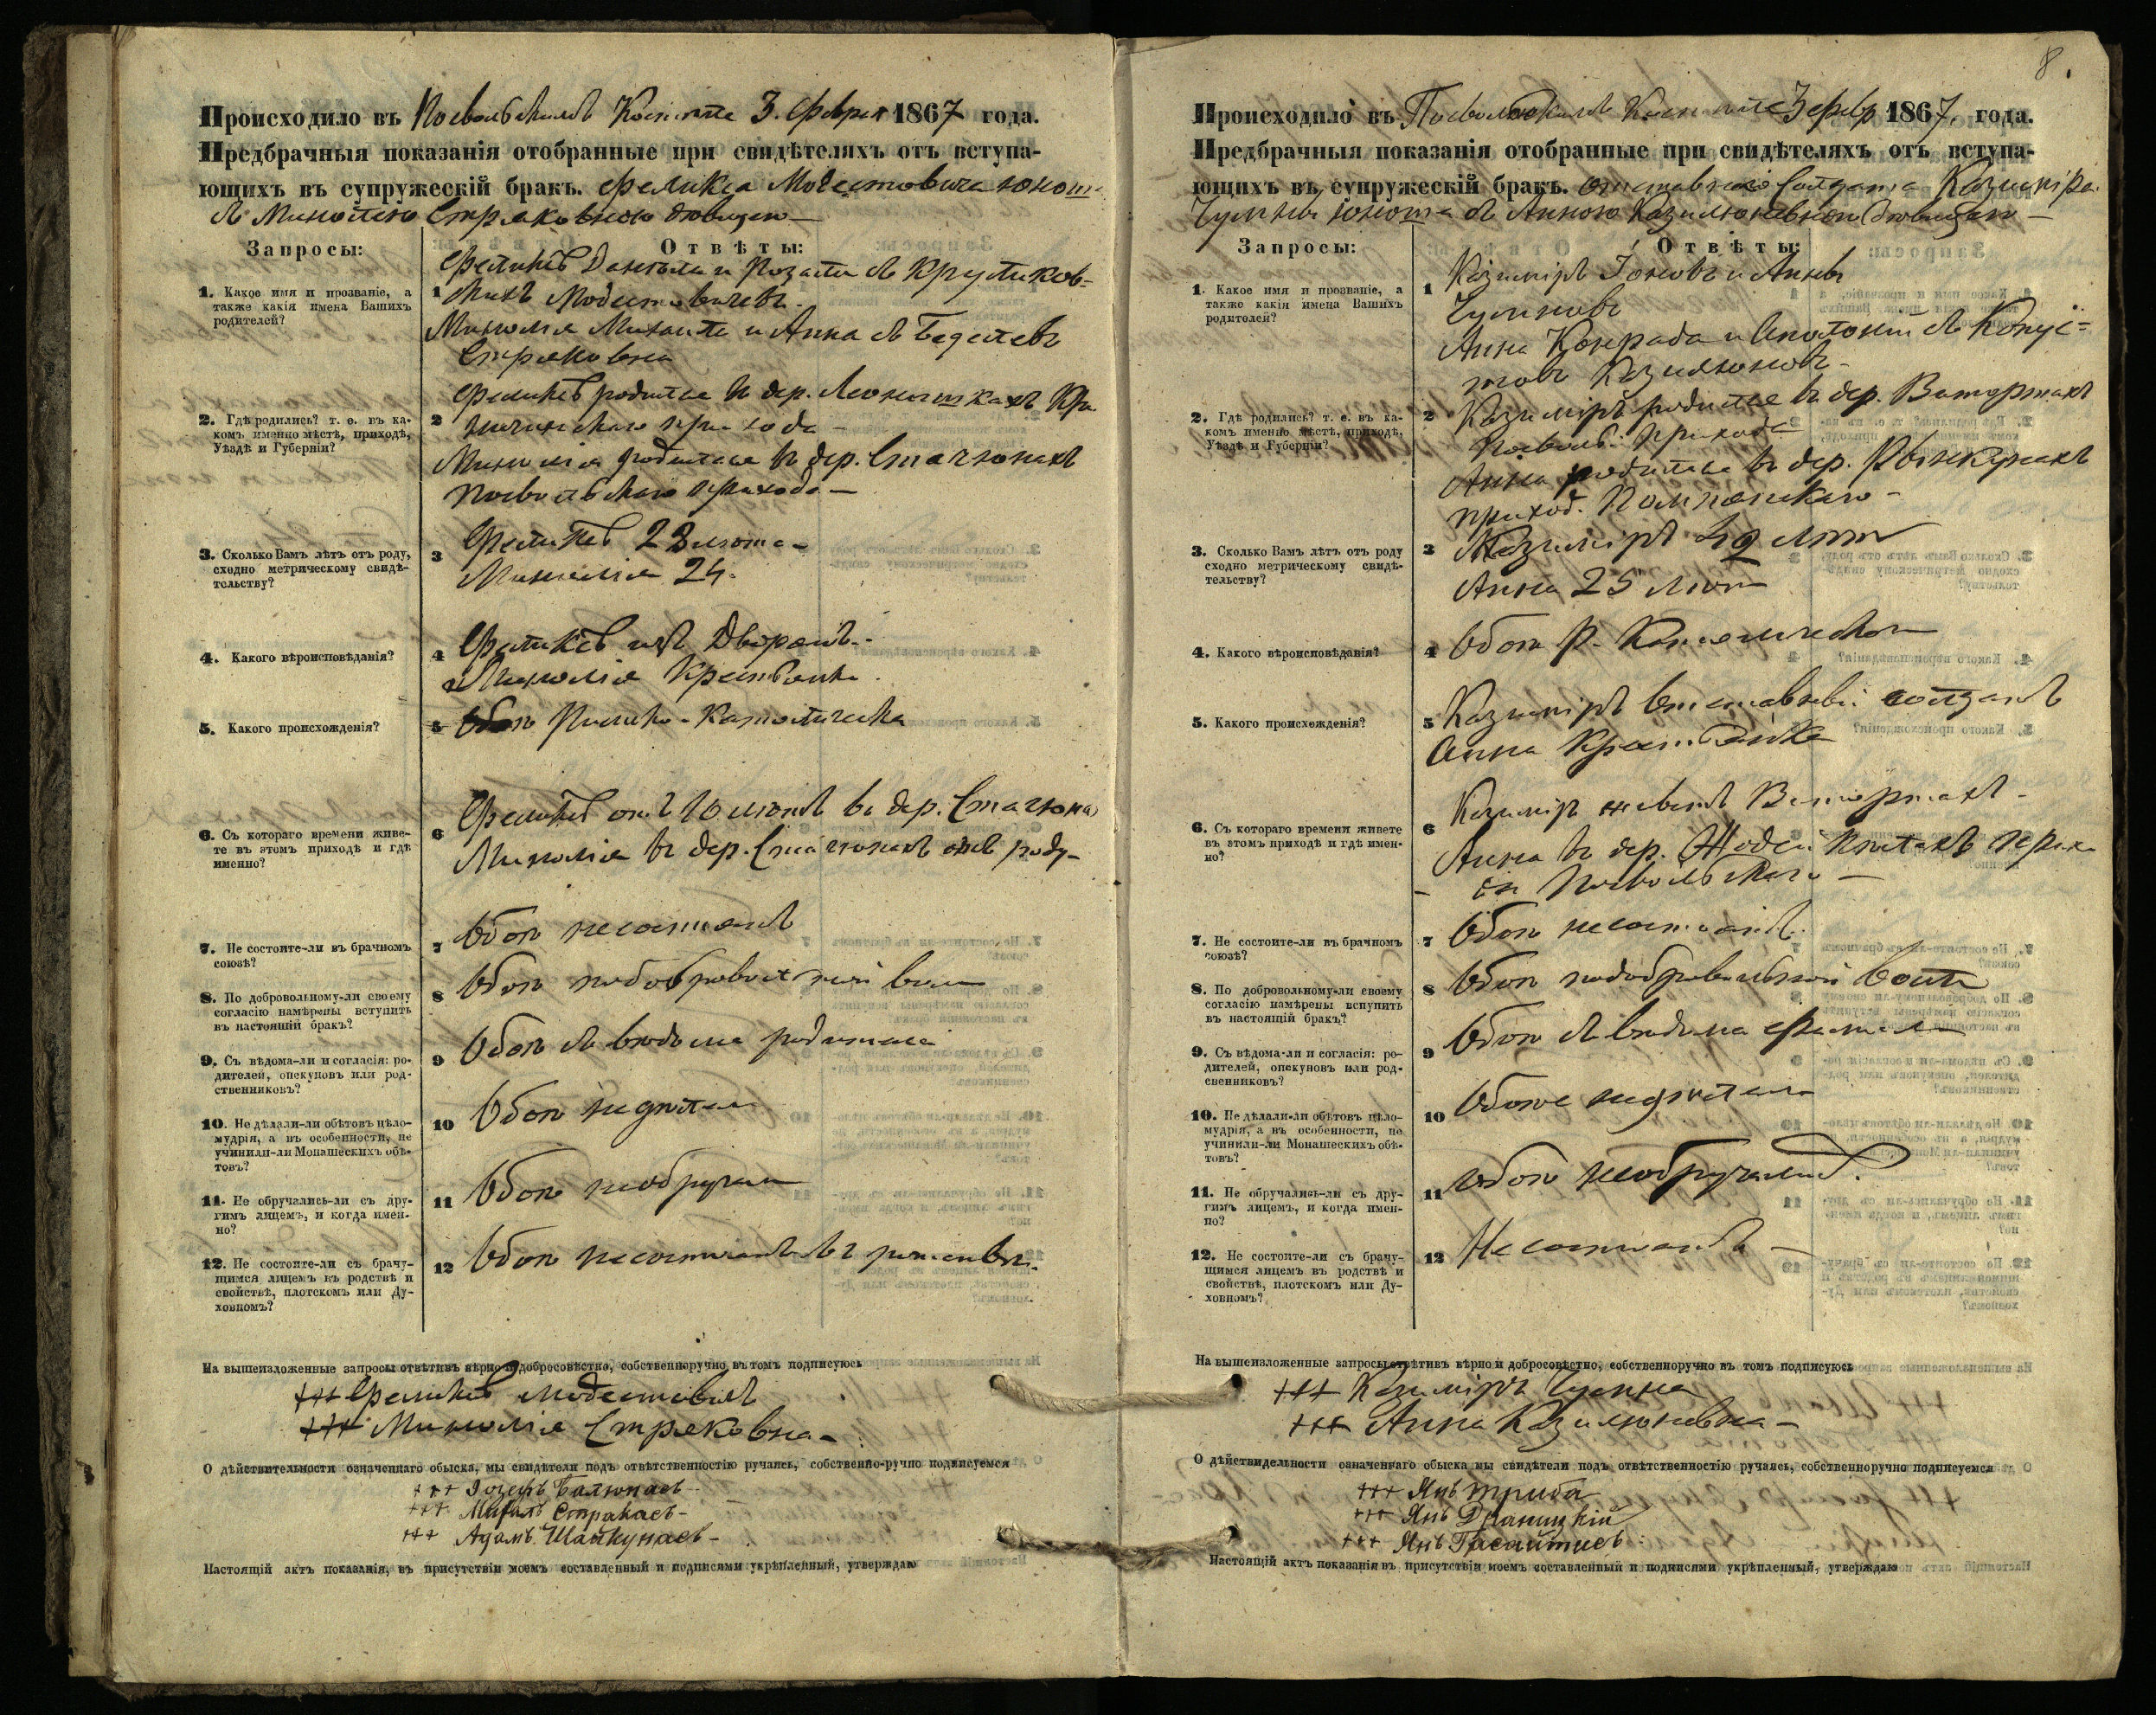 Происходило въ Посвольскомъ Костелѣ 3. Февраля 1867 года.
Предбрачныя показанія отобранные при свидѣтеляхъ отъ вступа-
ющихъ въ супружескій бракъ. Феликса Модестовича юноши
съ Миколіею Стряковною дѣвицею —
Запросы: Отвѣты:
1. Какое имя и прозваніе, а
также какія имена Вашихъ
родителей?
1 Феликсъ Даніила и Розаліи съ Крупиков-
скихъ Модестовичевъ.
Миколія Михаила и Анна съ
Стряковна
2. Гдѣ родились? т. е. въ ка-
комъ именно мѣстѣ, приходѣ,
Уѣздѣ и Губерніи?
2 Феликсъ родился въ дер.
прихода —
Миколія родилась въ дер. Стачюнахъ
Посвольскаго прихода —
3. Сколько Вамъ лѣтъ отъ роду,
сходно метрическому свидѣ-
тельству?
3 Феликсъ 28 лѣта —
Миколія 24.
4. Какого вѣроисповѣданія?
4 Феликсъ изъ Дворянъ —
Миколія Крестьянка.
5. Какого происхожденія?
5 Обои Римско-Католическа
6. Съ котораго времени живе-
те въ этомъ приходѣ и гдѣ
именно?
6 Феликсъ отъ 10 лѣтъ въ дер. Стачюнахъ
Миколія въ дер. Стачюнахъ отъ роду —
7. Не состоите-ли въ брачномъ
союзѣ?
7 Обои несостоятъ
8. По добровольному-ли своему
согласію намѣрены вступить
въ настоящій бракъ?
8 Обои подобровольной воли
9. Съ вѣдома-ли и согласія: ро-
дителей, опекуновъ или род-
ственниковъ?
9 Обои съ вѣдома родителей
10. Не дѣлали-ли обѣтовъ цѣло-
мудрія, а въ особенности, не
учинили-ли Монашескихъ обѣ-
товъ?
10 Обои недѣлали
11. Не обручались-ли съ дру-
гимъ лицемъ, и когда имен-
но?
11 Обои необручали
12. Не состоите-ли съ брачу-
щимся лицемъ въ родствѣ и
свойствѣ, плотскомъ или Ду-
ховномъ?
12 Обои несостоятъ въ
На вышеизложенные запросы отвѣтивъ вѣрно и добросовѣстно, собственноручно въ томъ подписуюсь
+++ Феликсъ Модестовичъ
+++ Миколія Стряковна —
О дѣйствительности означеннаго обыска, мы свидѣтели подъ отвѣтственностію ручаясь, собственно-ручно подписуемся
+++ Іозефъ Балюнасъ —
+++ Михалъ Стракасъ —
+++ Адамъ Шапкунасъ —
Настоящій актъ показанія, въ присутствіи моемъ составленный и подписями укрѣпленный, утверждаю
8.
Происходило въ Посвольскомъ Костелѣ 3 февр 1867, года.
Предбрачныя показанія отобранные при свидѣтеляхъ отъ вступа-
ющихъ въ супружескій бракъ. отставнаго Солдата Казиміра
юноша съ Анною Казилюновною дѣвицею —
Запросы: Отвѣты:
1. Какое имя и прозваніе, а
также какія имена Вашихъ
родителей?
1 Казиміръ и Анны
Анна Конрада и Аполоніи съ
товъ Казилюновъ —
2. Гдѣ родились? т. е. въ ка-
комъ именно мѣстѣ, приходѣ,
Уѣздѣ и Губерніи?
2 Казиміръ родился въ дер.
Посвольс: прихода
Анна родилась въ дер.
приход. Помпянскаго —
3. Сколько Вамъ лѣтъ отъ роду
сходно метрическому свидѣ-
тельству?
3 Казиміръ лѣтъ
Анна 25 лѣтъ
4. Какого вѣроисповѣданія?
4 Обои Р. Католическа
5. Какого происхожденія?
5 Казиміръ Отставный солдатъ
Анна Крестьянка
6. Съ котораго времени живете
въ этомъ приходѣ и гдѣ имен-
но?
6 Казиміръ живетъ
Анна въ дер. прихо
Посвольскаго —
7. Не состоите-ли въ брачномъ
союзѣ?
7 Обои несостоятъ.
8. По добровольному-ли своему
согласію намѣрены вступить
въ настоящій бракъ?
8 Обои подобровольной воли
9. Съ вѣдома-ли и согласія: ро-
дителей, опекуновъ или род-
свенниковъ?
9 Обои съ вѣдома
10. Не дѣлали-ли обѣтовъ цѣло-
мудрія, а въ особенности, не
учинили-ли Монашескихъ обѣ-
товъ?
10 Обои недѣлали
11. Не обручались-ли съ дру-
гимъ лицемъ, и когда имен-
но?
11 Обои необручались.
12. Не состоите-ли съ брачу-
щимся лицемъ въ родствѣ и
свойствѣ, плотскомъ или Ду-
ховномъ?
12 Несостоятъ —
На вышеизложенные запросы отвѣтивъ вѣрно и добросовѣстно, собственноручно въ томъ подписуюсь
+++ Казиміръ
+++ Анна Казилюновна —
О дѣйствидельности означеннаго обыска мы свидѣтели подъ отвѣтственностію ручаясь, собственноручно подписуемся
+++ Янъ Трыба
+++ Янъ Драницкій
+++ Янъ Гасайтисъ
Настоящій актъ показанія въ присутствіи моемъ составленный и подписями укрѣпленный, утверждаю